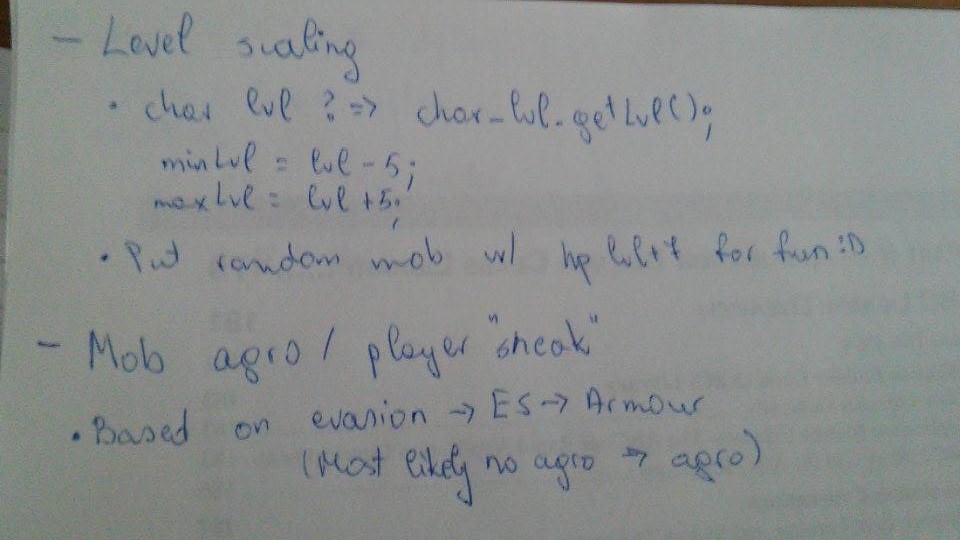 - Level scaling
• char lvl ? => char_lvl.getLvl();
minLvl = lvl - 5;
maxLvl = lvl + 5;
• Put random mob w/ hp lvl+7 for fun :D
- Mob agro / player "sneak"
• Based on evasion → ES → Armour
(Most likely no agro → agro)